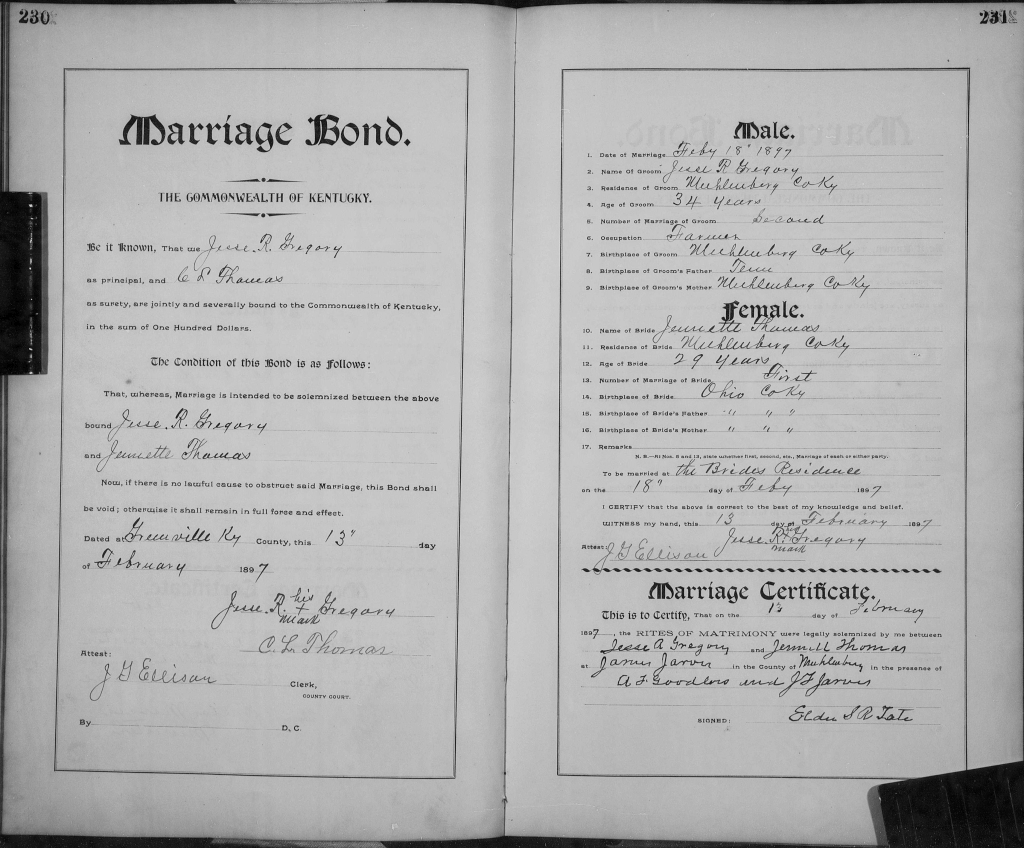 230
Marriage Bond.
THE COMMONWEALTH OF KENTUCKY.
Be it Known, That we Jesse. R. Gregory
as principal, and C L Thomas
as surety, are jointly and severally bound to the Commonwealth of Kentucky,
in the sum of One Hundred Dollars.
The Condition of this Bond is as Follows:
That, whereas, Marriage is intended to be solemnized between the above
bound Jesse. R. Gregory
and Jennette Thomas
Now, if there is no lawful cause to obstruct said Marriage, this Bond shall
be void; otherwise it shall remain in full force and effect.
Dated at Greenville Ky County, this 13" day
of February 1897
Jesse. R. his + mark Gregory
C. L. Thomas
Attest:
J G Ellison Clerk,
COUNTY COURT.
By D, C.
231
Male.
1. Date of Marriage Feby 18" 1897
2. Name Of Groom Jesse R Gregory
3. Residence of Groom Muhlenberg Co Ky
4. Age of Groom 34 years
5. Number of Marriage of Groom Second
6. Occupation Farmer
7. Birthplace of Groom Muhlenberg Co Ky
8. Birthplace of Groom's Father Tenn
9. Birthplace of Groom's Mother Muhlenberg Co Ky
Female.
10. Name of Bride Jennette Thomas
11. Residence of Bride Muhlenberg Co Ky
12. Age of Bride 29 years
13. Number of Marriage of Bride First
14. Birthplace of Bride Ohio Co Ky
15. Birthplace of Bride's Father " " "
16. Birthplace of Bride's Mother " " "
17. Remarks
N. B.—At Nos. 5 and 13, state whether first, second, etc., Marriage of each or either party.
To be married at the Brides Residence
on the 18" day of Feby 1897
I CERTIFY that the above is correct to the best of my knowledge and belief.
WITNESS my hand, this 13 day of February 1897
Jesse. R. his mark Gregory
Attest: J G Ellison
Marriage Certificate.
This is to Certify, That on the day of February
1897, the RITES OF MATRIMONY were legally solemnized by me between
Jesse A Gregory and Thomas
at Jarvis in the County of Muhlenburg in the presence of
A. F. and J F Jarvis
SIGNED: Elder S R Tate